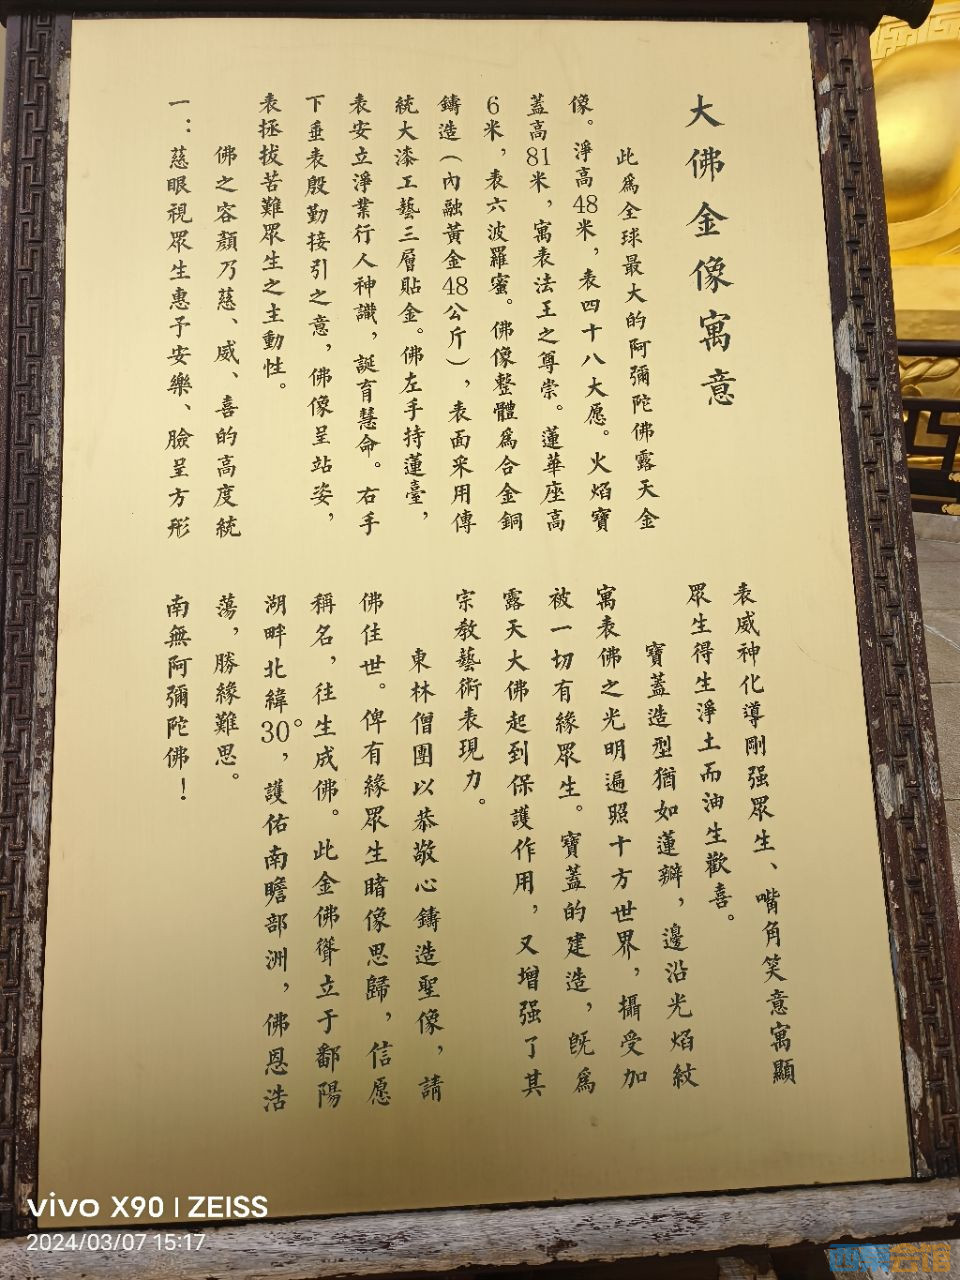 大佛金像寓意
此為全球最大的阿彌陀佛露天金
像。淨高48米，表四十八大愿。火焰寶
蓋高81米，寓表法王之尊崇。蓮華座高
6米，表六波羅蜜。佛像整體為合金銅
鑄造（內融黃金48公斤），表面采用傳
統大漆工藝三層貼金。佛左手持蓮臺，
表安立淨業行人神識，誕育慧命。右手
下垂表殷勤接引之意，佛像呈站姿，
表拯拔苦難眾生之主動性。
佛之容顏乃慈、威、喜的高度統
一：慈眼視眾生惠予安樂、臉呈方形
表威神化導剛强眾生、嘴角笑意寓顯
眾生得生淨土而油生歡喜。
寶蓋造型猶如蓮瓣，邊沿光焰紋
寓表佛之光明遍照十方世界，攝受加
被一切有緣眾生。寶蓋的建造，既為
露天大佛起到保護作用，又增强了其
宗教藝術表現力。
東林僧團以恭敬心鑄造聖像，請
佛住世。俾有緣眾生睹像思歸，信愿
稱名，往生成佛。此金佛聳立于鄱陽
湖畔北緯30°，護佑南瞻部洲，佛恩浩
蕩，勝緣難思。
南無阿彌陀佛！
vivo X90 | ZEISS
2024/03/07 15:17